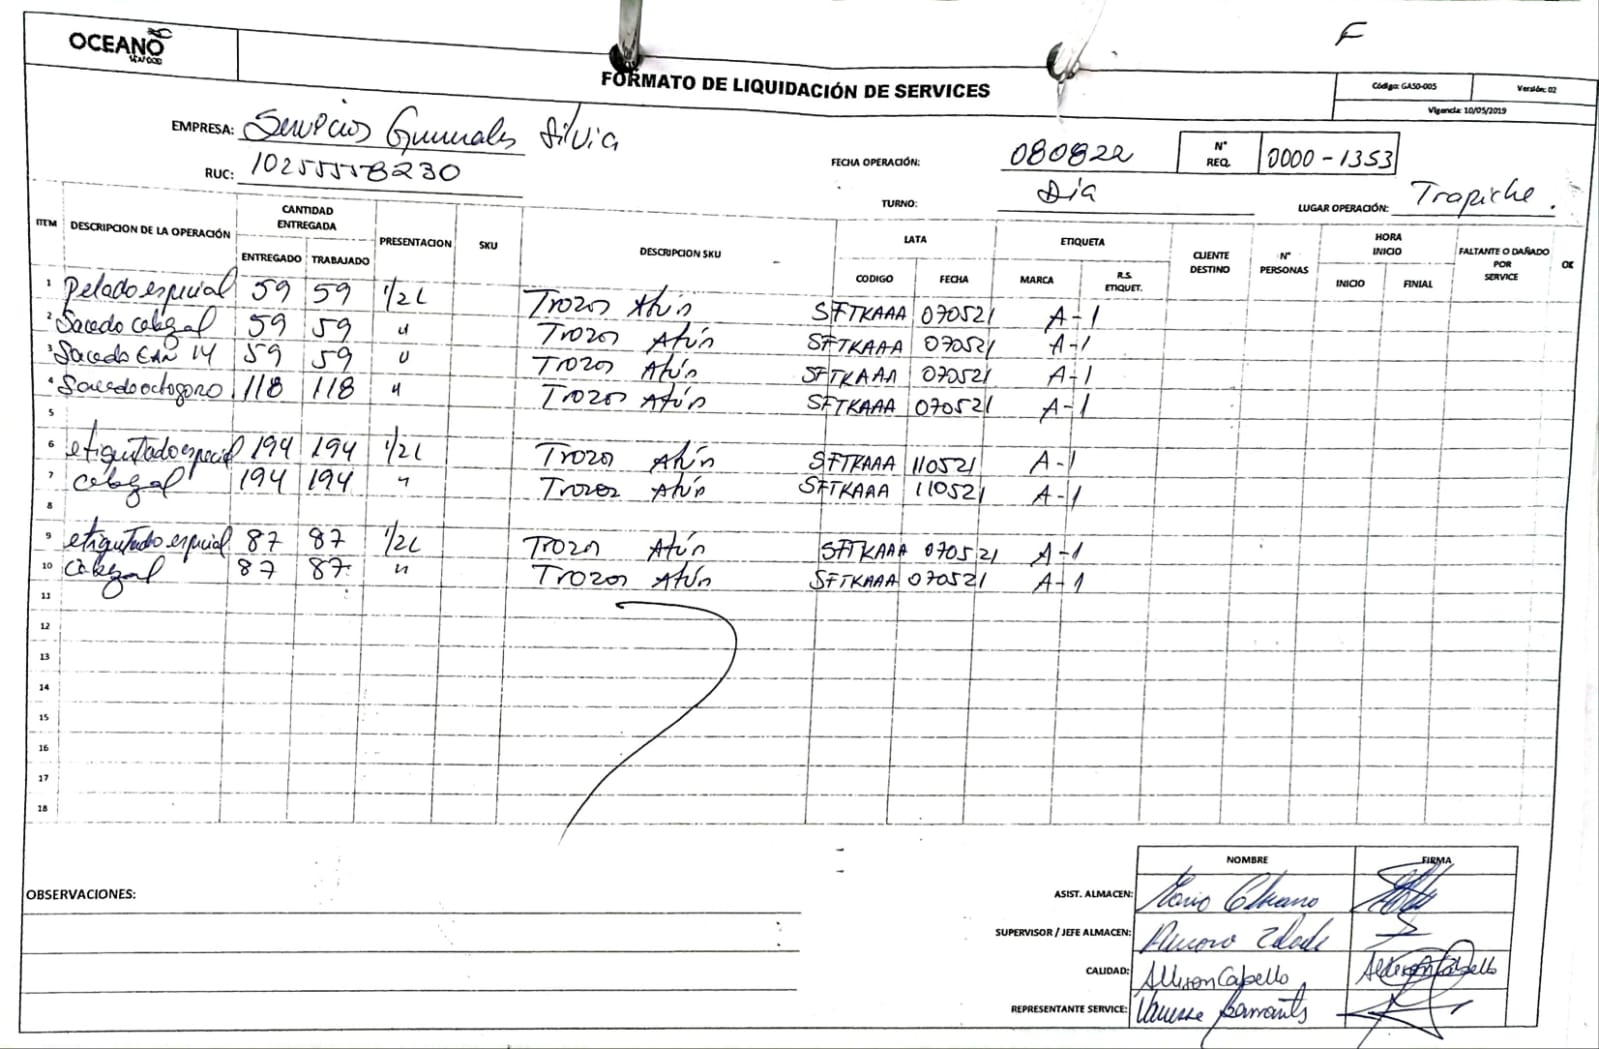 OCEANO
SEAFOOD
F
FORMATO DE LIQUIDACIÓN DE SERVICES
Código: GA50-005 Versión: 02
Vigencia: 10/05/2019
EMPRESA: Servicios Generales Silvia
RUC: 10255558230
FECHA OPERACIÓN: 080822 N° REQ. 0000-1353
TURNO: Día LUGAR OPERACIÓN: Trapiche.
ITEM DESCRIPCION DE LA OPERACIÓN CANTIDAD ENTREGADA PRESENTACION SKU DESCRIPCION SKU LATA ETIQUETA CLIENTE DESTINO N° PERSONAS HORA INICIO FALTANTE O DAÑADO POR SERVICE OK
ENTREGADO TRABAJADO CODIGO FECHA MARCA R.S. ETIQUET. INICIO FINIAL
1 Pelado especial 59 59 1/2L Trozos Atún SFTKAAA 070521 A-1
2 59 59 " Trozos Atún SFTKAAA 070521 A-1
3 EAN 14 59 59 " Trozos Atún SFTKAAA 070521 A-1
4 118 118 " Trozos Atún SFTKAAA 070521 A-1
5
6 etiquetado especial 194 194 1/2L Trozos Atún SFTKAAA 110521 A-1
7 194 194 " Trozos Atún SFTKAAA 110521 A-1
8
9 etiquetado especial 87 87 1/2L Trozos Atún SFTKAAA 070521 A-1
10 87 87 " Trozos Atún SFTKAAA 070521 A-1
11
12
13
14
15
16
17
18
NOMBRE FIRMA
OBSERVACIONES:
ASIST. ALMACEN: Mario
SUPERVISOR / JEFE ALMACEN:
CALIDAD: Allison Cabello Allison Cabello
REPRESENTANTE SERVICE: Vanessa